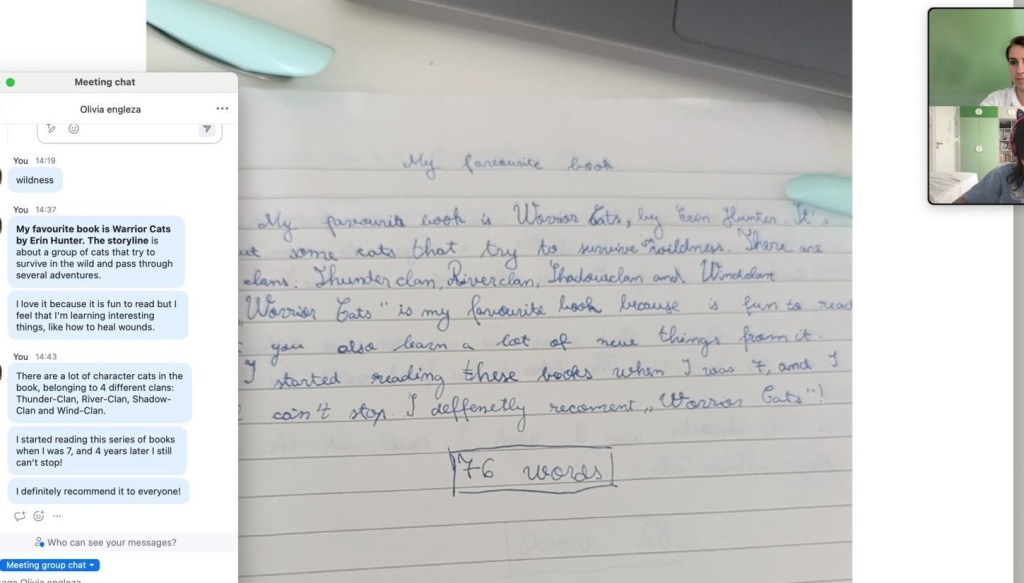 Meeting chat
Olivia engleza
You 14:19
wildness
You 14:37
My favourite book is Warrior Cats
by Erin Hunter. The storyline is
about a group of cats that try to
survive in the wild and pass through
several adventures.
I love it because it is fun to read but I
feel that I'm learning interesting
things, like how to heal wounds.
You 14:43
There are a lot of character cats in the
book, belonging to 4 different clans:
Thunder-Clan, River-Clan, Shadow-
Clan and Wind-Clan.
I started reading this series of books
when I was 7, and 4 years later I still
can't stop!
I definitely recommend it to everyone!
Who can see your messages?
Meeting group chat
Olivia engleza
My favourite book
My favourite book is Worrior Cats, by Erin Hunter. It's
some cats that try to survive wildness. There are
clans. Thunder clan, Riverclan, Shadowclan and Windclan
„Worrior Cats" is my favourite book because is fun to read
you also learn a lot of new things from it.
I started reading these books when I was 7, and I
can't stop. I deffenetly recoment „Worrior Cats"!
76 words